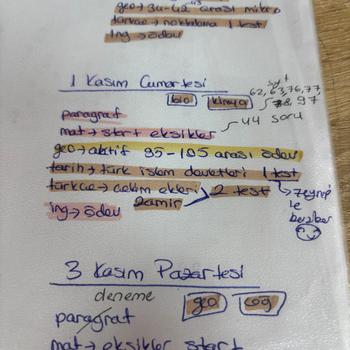 geo→34-42 arası mikro
türkçe→noktalama 1 test
ing→ödev
1 Kasım Cumartesi
bio kimya
syf
62, 63, 76, 77,
78 97
paragraf
mat→start eksikler
44 soru
geo→aktif 95-105 arası ödev
tarih→türk islam devletleri 1 test
türkçe→çekim ekleri 2 test
zamir
ing→ödev
→zeynep
le
beraber
3 Kasım Pazartesi
deneme
geo coğ
paragraf
mat→eksikler start